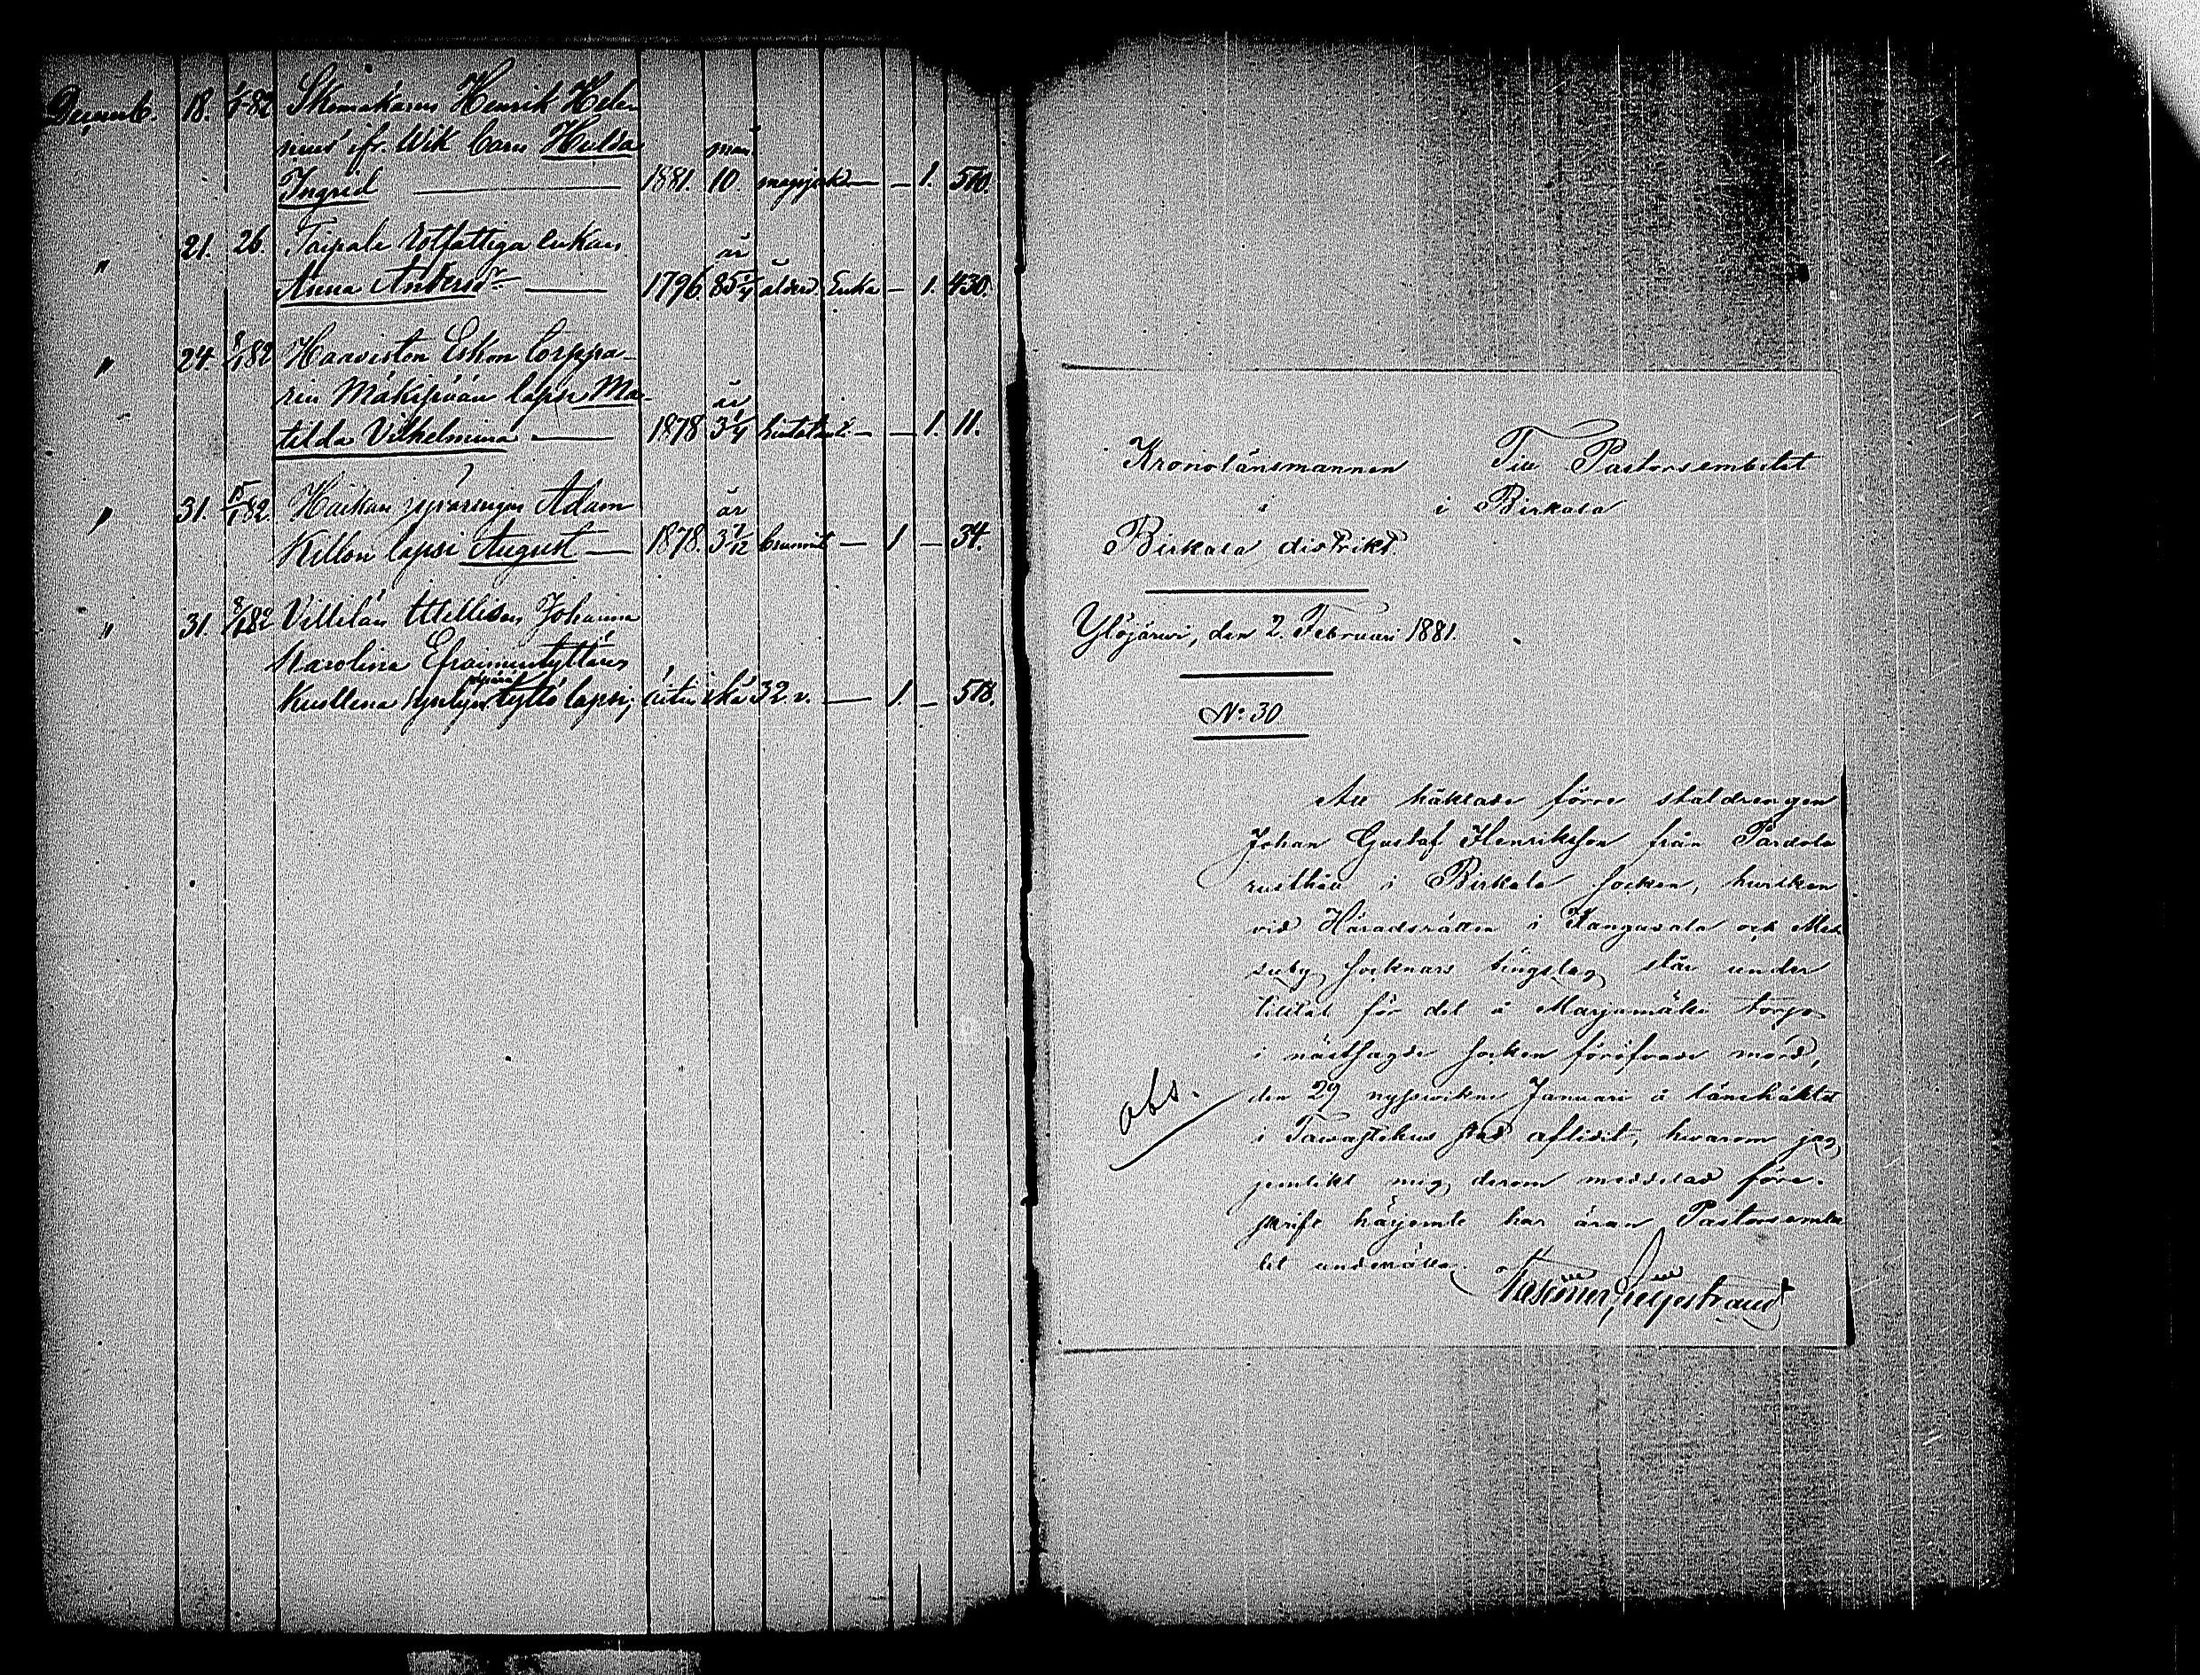 Decemb. 18. 1/1 82 Skomakaren Henrik Hele-
nius ifr. Wik barn Hulda mån.
Ingrid — 1881. 10 — 1. 510.
" 21. 26. Taipale rotfattiga enkan år
Anna Andersdr — 1796. 85 1/4 ålderd. Enka — 1. 430.
" 24. 8/1 82 Haaviston Eskon torppa-
rin Mäkipään lapsi Ma- år
tilda Vilhelmina — 1878 3 1/4 — — 1. 11.
" 31. 15/1 82. Haikan Adam år
Killon lapsi August — 1878. 3 1/12 — 1 — 34.
" 31. 8/1 82 Villilän Itellisen Johanna
Karolina Efraimintyttären
Kuollena syntynyt tyttö lapsi, äitin ikä 32. v. — 1. — 518.
Kronolänsmannen Till Pastorsembetet
i i Birkala
Birkala distrikt.
Ylöjärvi, den 2. Februari 1881.
No: 30
Att häktade förre staldrengen
Johan Gustaf Henriksson från Pardola
rusthåll i Birkala socken, hvilken
vid Häradsrätten i Kangasala och Mes-
suby socknars tingslag står under
tilltal för det å Marjamäki torp
i nästsagde socken föröfvade mord,
den 29 nyssvikne Januari å länehäktet
obs.
i Tawastehus stad aflidit, hvarom jag
jemlikt mig derom meddelad före-
skrift härjemte har äran Pastorsembe-
tet underrätta.